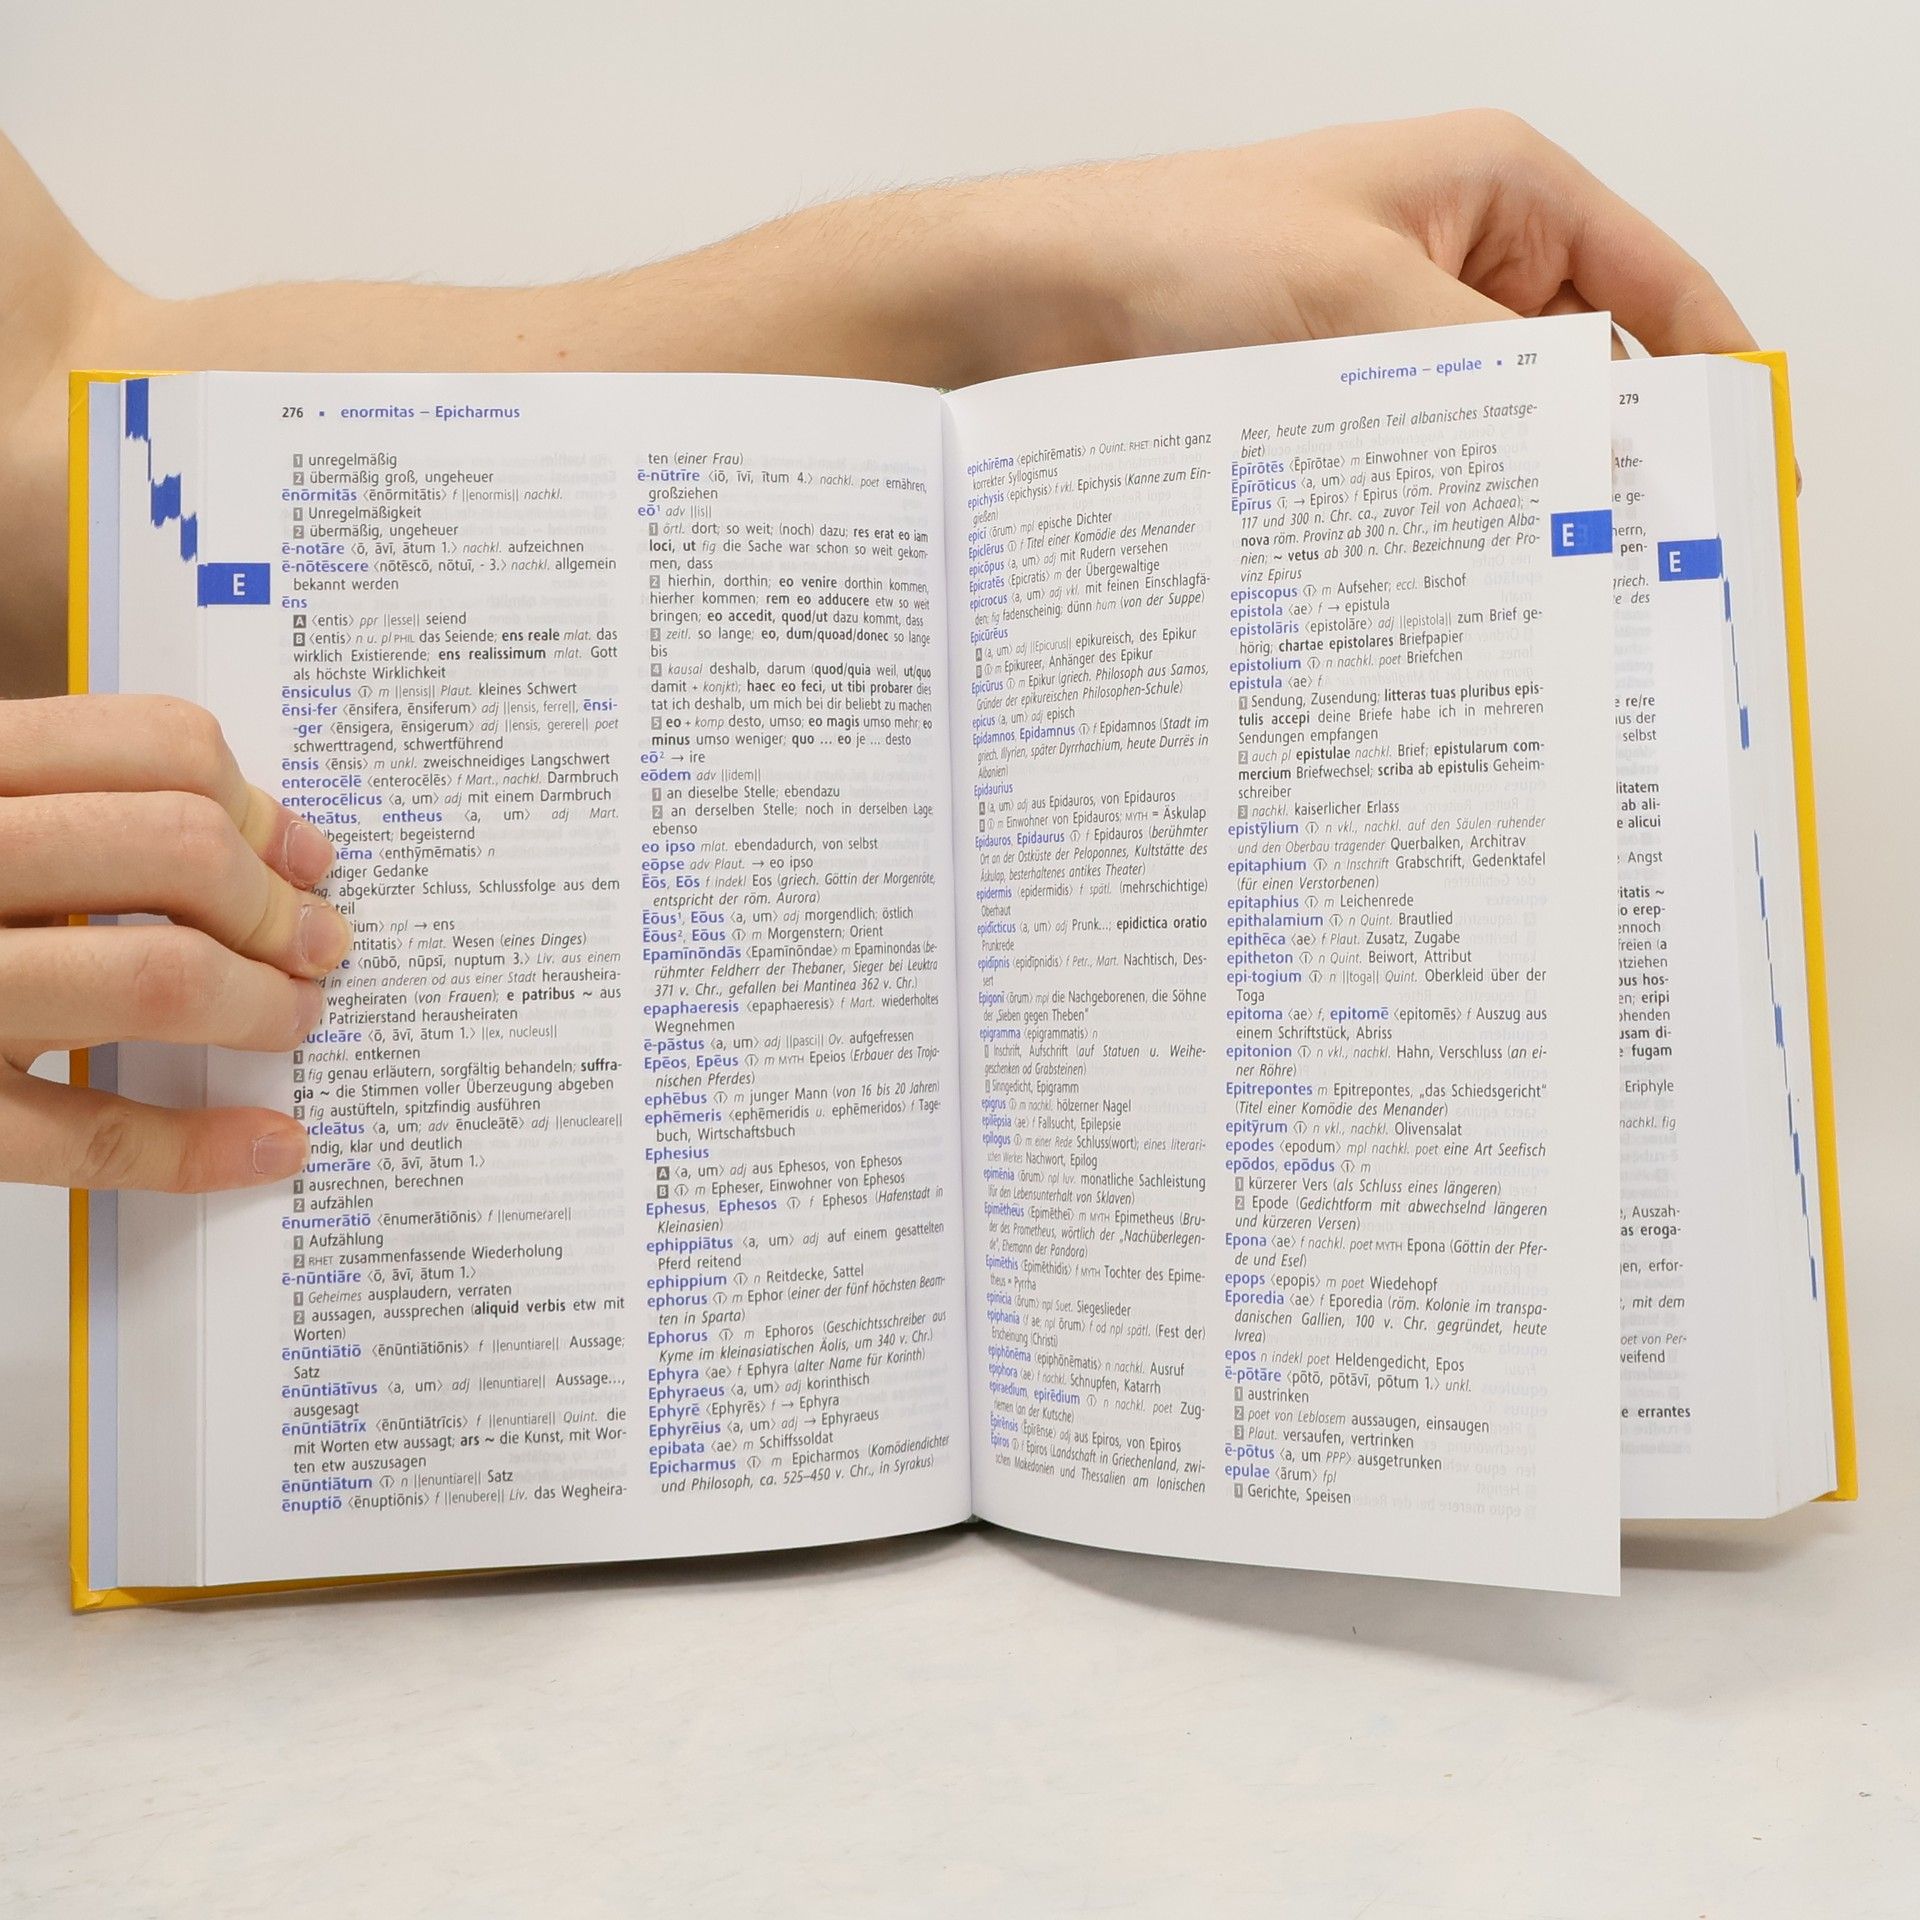 276 ▪ enormitas – Epicharmus
1 unregelmäßig
2 übermäßig groß, ungeheuer
ēnōrmitās ⟨ēnōrmitātis⟩ f ||enormis|| nachkl.
1 Unregelmäßigkeit
2 übermäßig, ungeheuer
ē-notāre ⟨ō, āvī, ātum 1.⟩ nachkl. aufzeichnen
ē-nōtēscere ⟨nōtēscō, nōtuī, - 3.⟩ nachkl. allgemein
bekannt werden
ēns
A ⟨entis⟩ ppr ||esse|| seiend
B ⟨entis⟩ n u. pl PHIL das Seiende; ens reale mlat. das
wirklich Existierende; ens realissimum mlat. Gott
als höchste Wirklichkeit
ēnsiculus ⟨ī⟩ m ||ensis|| Plaut. kleines Schwert
ēnsi-fer ⟨ēnsifera, ēnsiferum⟩ adj ||ensis, ferre||, ēnsi-
-ger ⟨ēnsigera, ēnsigerum⟩ adj ||ensis, gerere|| poet
schwerttragend, schwertführend
ēnsis ⟨ēnsis⟩ m unkl. zweischneidiges Langschwert
enterocēlē ⟨enterocēlēs⟩ f Mart., nachkl. Darmbruch
enterocēlicus ⟨a, um⟩ adj mit einem Darmbruch
theātus, entheus ⟨a, um⟩ adj Mart.
begeistert; begeisternd
⟨enthȳmēmatis⟩ n
Gedanke
abgekürzter Schluss, Schlussfolge aus dem
teil
npl → ens
f mlat. Wesen (eines Dinges)
⟨nūbō, nūpsī, nuptum 3.⟩ Liv. aus einem
in einen anderen od aus einer Stadt herausheira-
wegheiraten (von Frauen); e patribus ~ aus
Patrizierstand herausheiraten
ucleāre ⟨ō, āvī, ātum 1.⟩ ||ex, nucleus||
1 nachkl. entkernen
2 fig genau erläutern, sorgfältig behandeln; suffra-
gia ~ die Stimmen voller Überzeugung abgeben
3 fig austüfteln, spitzfindig ausführen
ucleātus ⟨a, um; adv ēnucleātē⟩ adj ||enucleare||
ndig, klar und deutlich
umerāre ⟨ō, āvī, ātum 1.⟩
1 ausrechnen, berechnen
2 aufzählen
ēnumerātiō ⟨ēnumerātiōnis⟩ f ||enumerare||
1 Aufzählung
2 RHET zusammenfassende Wiederholung
ē-nūntiāre ⟨ō, āvī, ātum 1.⟩
1 Geheimes ausplaudern, verraten
2 aussagen, aussprechen (aliquid verbis etw mit
Worten)
ēnūntiātiō ⟨ēnūntiātiōnis⟩ f ||enuntiare|| Aussage;
Satz
ēnūntiātīvus ⟨a, um⟩ adj ||enuntiare|| Aussage...,
ausgesagt
ēnūntiātrīx ⟨ēnūntiātrīcis⟩ f ||enuntiare|| Quint. die
mit Worten etw aussagt; ars ~ die Kunst, mit Wor-
ten etw auszusagen
ēnūntiātum ⟨ī⟩ n ||enuntiare|| Satz
ēnuptiō ⟨ēnuptiōnis⟩ f ||enubere|| Liv. das Wegheira-
ten (einer Frau)
ē-nūtrīre ⟨iō, īvī, ītum 4.⟩ nachkl. poet ernähren,
großziehen
eō¹ adv ||is||
1 örtl. dort; so weit; (noch) dazu; res erat eo iam
loci, ut fig die Sache war schon so weit gekom-
men, dass
2 hierhin, dorthin; eo venire dorthin kommen,
hierher kommen; rem eo adducere etw so weit
bringen; eo accedit, quod/ut dazu kommt, dass
3 zeitl. so lange; eo, dum/quoad/donec so lange
bis
4 kausal deshalb, darum (quod/quia weil, ut/quo
damit + konjkt); haec eo feci, ut tibi probarer dies
tat ich deshalb, um mich bei dir beliebt zu machen
5 eo + komp desto, umso; eo magis umso mehr; eo
minus umso weniger; quo ... eo je ... desto
eō² → ire
eōdem adv ||idem||
1 an dieselbe Stelle; ebendazu
2 an derselben Stelle; noch in derselben Lage
ebenso
eo ipso mlat. ebendadurch, von selbst
eōpse adv Plaut. → eo ipso
Ēōs, Eōs f indekl Eos (griech. Göttin der Morgenröte,
entspricht der röm. Aurora)
Ēōus¹, Eōus ⟨a, um⟩ adj morgendlich; östlich
Ēōus², Eōus ⟨ī⟩ m Morgenstern; Orient
Epamīnōndās ⟨Epamīnōndae⟩ m Epaminondas (be-
rühmter Feldherr der Thebaner, Sieger bei Leuktra
371 v. Chr., gefallen bei Mantinea 362 v. Chr.)
epaphaeresis ⟨epaphaeresis⟩ f Mart. wiederholtes
Wegnehmen
ē-pāstus ⟨a, um⟩ adj ||pasci|| Ov. aufgefressen
Epēos, Epēus ⟨ī⟩ m MYTH Epeios (Erbauer des Troja-
nischen Pferdes)
ephēbus ⟨ī⟩ m junger Mann (von 16 bis 20 Jahren)
ephēmeris ⟨ephēmeridis u. ephēmeridos⟩ f Tage-
buch, Wirtschaftsbuch
Ephesius
A ⟨a, um⟩ adj aus Ephesos, von Ephesos
B ⟨ī⟩ m Epheser, Einwohner von Ephesos
Ephesus, Ephesos ⟨ī⟩ f Ephesos (Hafenstadt in
Kleinasien)
ephippiātus ⟨a, um⟩ adj auf einem gesattelten
Pferd reitend
ephippium ⟨ī⟩ n Reitdecke, Sattel
ephorus ⟨ī⟩ m Ephor (einer der fünf höchsten Beam-
ten in Sparta)
Ephorus ⟨ī⟩ m Ephoros (Geschichtsschreiber aus
Kyme im kleinasiatischen Äolis, um 340 v. Chr.)
Ephyra ⟨ae⟩ f Ephyra (alter Name für Korinth)
Ephyraeus ⟨a, um⟩ adj korinthisch
Ephyrē ⟨Ephyrēs⟩ f → Ephyra
Ephyrēius ⟨a, um⟩ adj → Ephyraeus
epibata ⟨ae⟩ m Schiffssoldat
Epicharmus ⟨ī⟩ m Epicharmos (Komödiendichter
und Philosoph, ca. 525–450 v. Chr., in Syrakus)
E
epichirema – epulae ▪ 277
epichīrēma ⟨epichīrēmatis⟩ n Quint. RHET nicht ganz
korrekter Syllogismus
epichysis ⟨epichysis⟩ f vkl. Epichysis (Kanne zum Ein-
gießen)
epicī ⟨ōrum⟩ mpl epische Dichter
Epiclērus ⟨ī⟩ f Titel einer Komödie des Menander
epicōpus ⟨a, um⟩ adj mit Rudern versehen
Epicratēs ⟨Epicratis⟩ m der Übergewaltige
epicrocus ⟨a, um⟩ adj vkl. mit feinen Einschlagfä-
den; fig fadenscheinig; dünn hum (von der Suppe)
Epicūrēus
A ⟨a, um⟩ adj ||Epicurus|| epikureisch, des Epikur
B ⟨ī⟩ m Epikureer, Anhänger des Epikur
Epicūrus ⟨ī⟩ m Epikur (griech. Philosoph aus Samos,
Gründer der epikureischen Philosophen-Schule)
epicus ⟨a, um⟩ adj episch
Epidamnos, Epidamnus ⟨ī⟩ f Epidamnos (Stadt im
griech. Illyrien, später Dyrrhachium, heute Durrës in
Albanien)
Epidaurius
A ⟨a, um⟩ adj aus Epidauros, von Epidauros
B ⟨ī⟩ m Einwohner von Epidauros; MYTH = Äskulap
Epidauros, Epidaurus ⟨ī⟩ f Epidauros (berühmter
Ort an der Ostküste der Peloponnes, Kultstätte des
Äskulap, besterhaltenes antikes Theater)
epidermis ⟨epidermidis⟩ f spätl. (mehrschichtige)
Oberhaut
epidīcticus ⟨a, um⟩ adj Prunk...; epidictica oratio
Prunkrede
epidīpnis ⟨epidīpnidis⟩ f Petr., Mart. Nachtisch, Des-
sert
Epigonī ⟨ōrum⟩ mpl die Nachgeborenen, die Söhne
der „Sieben gegen Theben“
epigramma ⟨epigrammatis⟩ n
1 Inschrift, Aufschrift (auf Statuen u. Weihe-
geschenken od Grabsteinen)
2 Sinngedicht, Epigramm
epigrus ⟨ī⟩ m nachkl. hölzerner Nagel
epilēpsia ⟨ae⟩ f Fallsucht, Epilepsie
epilogus ⟨ī⟩ m einer Rede Schluss(wort); eines literari-
schen Werkes Nachwort, Epilog
epimēnia ⟨ōrum⟩ npl Iuv. monatliche Sachleistung
(für den Lebensunterhalt von Sklaven)
Epimētheus ⟨Epimētheī⟩ m MYTH Epimetheus (Bru-
der des Prometheus, wörtlich der „Nachüberlegen-
de“, Ehemann der Pandora)
Epimēthis ⟨Epimēthidis⟩ f MYTH Tochter des Epime-
theus = Pyrrha
epinīcia ⟨ōrum⟩ npl Suet. Siegeslieder
epiphania ⟨f ae; npl ōrum⟩ f od npl spätl. (Fest der)
Erscheinung (Christi)
epiphōnēma ⟨epiphōnēmatis⟩ n nachkl. Ausruf
epiphora ⟨ae⟩ f nachkl. Schnupfen, Katarrh
epiraedium, epirēdium ⟨ī⟩ n nachkl. poet Zug-
riemen (an der Kutsche)
Ēpīrēnsis ⟨Ēpīrēnse⟩ adj aus Epiros, von Epiros
Ēpīros ⟨ī⟩ f Epiros (Landschaft in Griechenland, zwi-
schen Makedonien und Thessalien am Ionischen
Meer, heute zum großen Teil albanisches Staatsge-
biet)
Ēpīrōtēs ⟨Ēpīrōtae⟩ m Einwohner von Epiros
Ēpīrōticus ⟨a, um⟩ adj aus Epiros, von Epiros
Ēpīrus ⟨ī; → Epiros⟩ f Epirus (röm. Provinz zwischen
117 und 300 n. Chr. ca., zuvor Teil von Achaea); ~
nova röm. Provinz ab 300 n. Chr., im heutigen Alba-
nien; ~ vetus ab 300 n. Chr. Bezeichnung der Pro-
vinz Epirus
episcopus ⟨ī⟩ m Aufseher; eccl. Bischof
epistola ⟨ae⟩ f → epistula
epistolāris ⟨epistolāre⟩ adj ||epistola|| zum Brief ge-
hörig; chartae epistolares Briefpapier
epistolium ⟨ī⟩ n nachkl. poet Briefchen
epistula ⟨ae⟩ f
1 Sendung, Zusendung; litteras tuas pluribus epis-
tulis accepi deine Briefe habe ich in mehreren
Sendungen empfangen
2 auch pl epistulae nachkl. Brief; epistularum com-
mercium Briefwechsel; scriba ab epistulis Geheim-
schreiber
3 nachkl. kaiserlicher Erlass
epistȳlium ⟨ī⟩ n vkl., nachkl. auf den Säulen ruhender
und den Oberbau tragender Querbalken, Architrav
epitaphium ⟨ī⟩ n Inschrift Grabschrift, Gedenktafel
(für einen Verstorbenen)
epitaphius ⟨ī⟩ m Leichenrede
epithalamium ⟨ī⟩ n Quint. Brautlied
epithēca ⟨ae⟩ f Plaut. Zusatz, Zugabe
epitheton ⟨ī⟩ n Quint. Beiwort, Attribut
epi-togium ⟨ī⟩ n ||toga|| Quint. Oberkleid über der
Toga
epitoma ⟨ae⟩ f, epitomē ⟨epitomēs⟩ f Auszug aus
einem Schriftstück, Abriss
epitonion ⟨ī⟩ n vkl., nachkl. Hahn, Verschluss (an ei-
ner Röhre)
Epitrepontes m Epitrepontes, „das Schiedsgericht“
(Titel einer Komödie des Menander)
epitȳrum ⟨ī⟩ n vkl., nachkl. Olivensalat
epodes ⟨epodum⟩ mpl nachkl. poet eine Art Seefisch
epōdos, epōdus ⟨ī⟩ m
1 kürzerer Vers (als Schluss eines längeren)
2 Epode (Gedichtform mit abwechselnd längeren
und kürzeren Versen)
Epona ⟨ae⟩ f nachkl. poet MYTH Epona (Göttin der Pfer-
de und Esel)
epops ⟨epopis⟩ m poet Wiedehopf
Eporedia ⟨ae⟩ f Eporedia (röm. Kolonie im transpa-
danischen Gallien, 100 v. Chr. gegründet, heute
Ivrea)
epos n indekl poet Heldengedicht, Epos
ē-pōtāre ⟨pōtō, pōtāvī, pōtum 1.⟩ unkl.
1 austrinken
2 poet von Leblosem aussaugen, einsaugen
3 Plaut. versaufen, vertrinken
ē-pōtus ⟨a, um PPP⟩ ausgetrunken
epulae ⟨ārum⟩ fpl
1 Gerichte, Speisen
E
279
Athe-
ge-
herrn,
pen-
griech.
des
re/re
aus der
selbst
litatem
ab ali-
alicui
Angst
vitatis ~
erep-
ennoch
freien (a
ntziehen
ous hos-
en; eripi
ohenden
usam di-
fugam
Eriphyle
nachkl. fig
Auszah-
as eroga-
en, erfor-
mit dem
oet von Per-
weifend
errantes
E